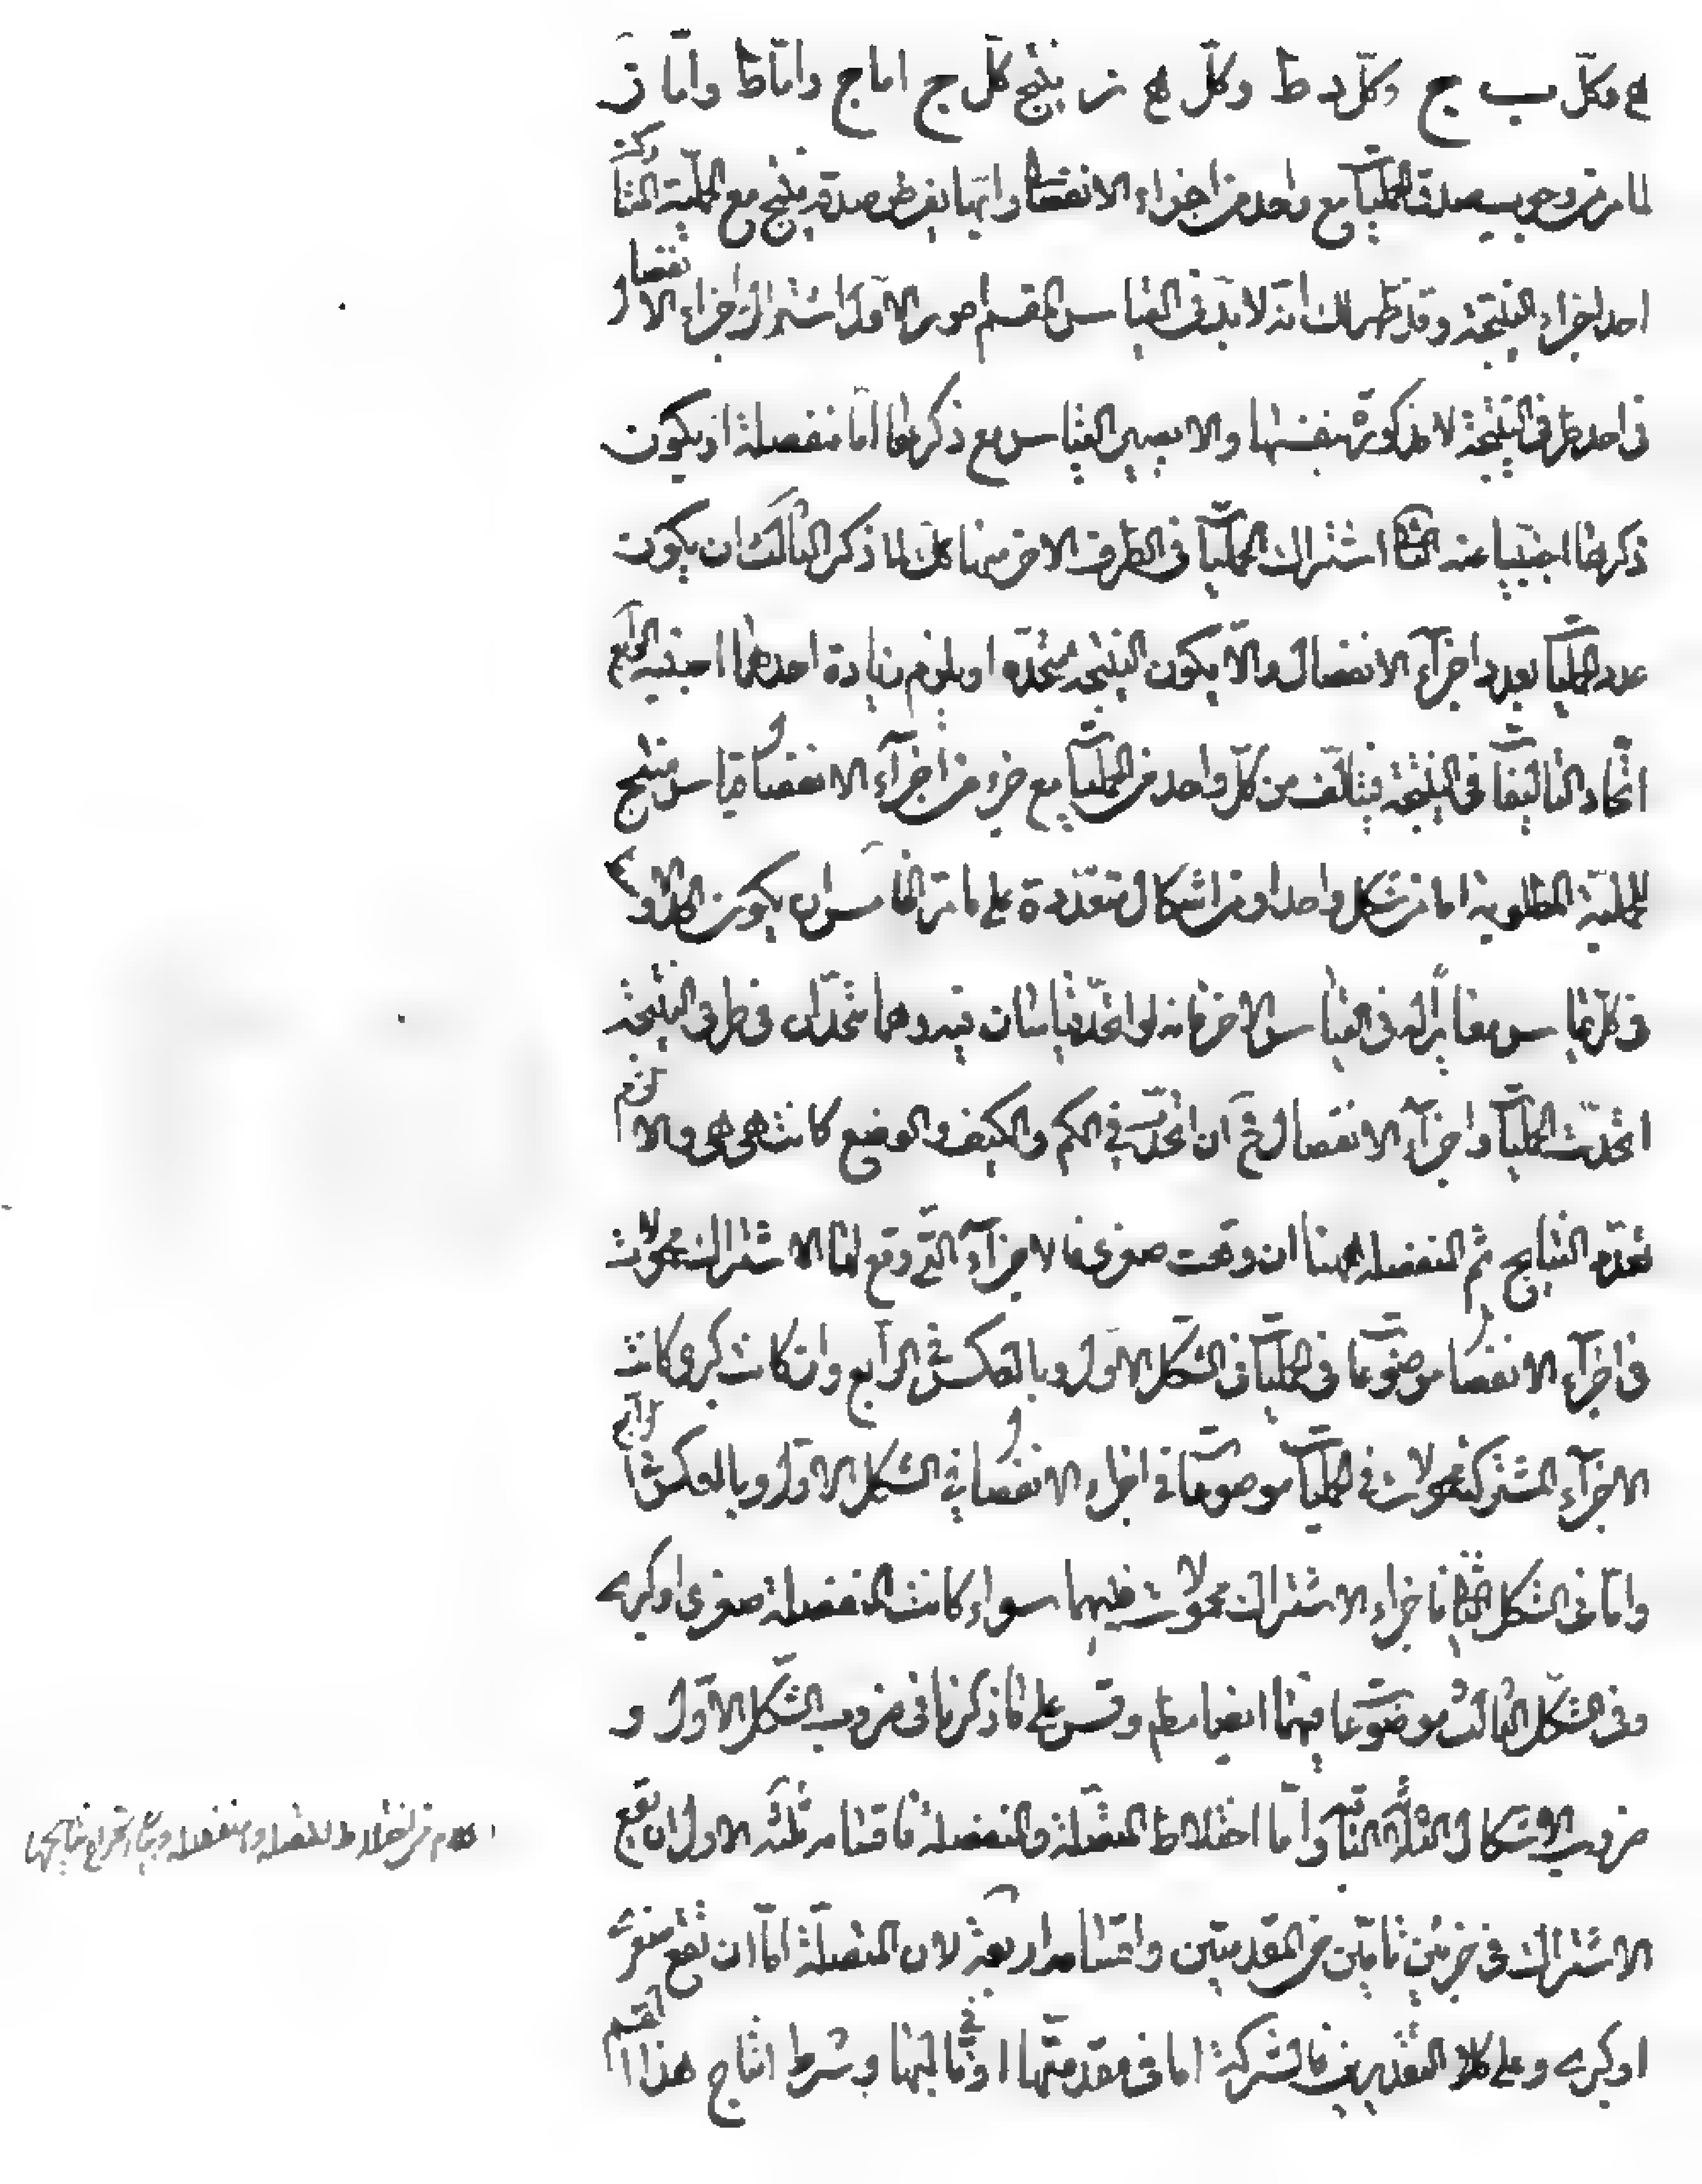 ه وكلّ ب ج وكلّ د ط وكلّ ه ز ينتج كلّ ج اما ج وامّا ط وامّا ز
لما مر من وجوب صدق الحمليات مع واحد من اجزاء الانفصال وايّها يفرض صدقه ينتج مع الحمليّة المشاركة
احد اجزاء النتيجة وقد ظهر لك انّه لا بدّ فى القياس المقسم امور الاوّل اشتراك اجزاء الانفصال
فى احد طرفى النتيجة لا مذكورة بنفسها والا يصير القياس مع ذكرها اما منفصلة او يكون
ذكرها اجنبيا عنه الثانى اشتراك الحمليات فى الطرف الاخر منها كك لما ذكر الثالث ان يكون
عدد الحمليات بعدد اجزآء الانفصال والّا يكون النتيجة متحدة او يلزم زيادة احدهما اجنبيه الرابع
اتحاد التاليفات فى النتيجة فيتالّف من كلّ واحد من الحمليات مع جزء من اجزآء الانفصال قياس منتج
للحمليّة المطلوبة اما من شكل واحد او من اشكال متعدّدة على ما مرّ الخامس ان يكون الحد الاوسط
فى كلّ قياس مغايرا له فى القياس الاخر فانه لو اتحد قياسان فيه وهما متحدان فى طرفى النتيجة
اتحدت الحمليات واجزآء الانفصال فح ان اتحدت في الكم والكيف والوضع كانت هى هى والا لزم
تعدّد النتايج ثم المنفصلة ههنا ان وقعت صغرى فالاجزآء التى وقع لها الاشتراك محمولات
فى اجزآء الانفصال موضوعات فى الحمليات فى الشكل الاول وبالعكس فى الرابع وان كانت كبرى كانت
الاجزآء المشتركة محمولات فى الحمليات موضوعات فى اجزاء الانفصال في الشكل الاول وبالعكس فى الرابع
وامّا فى الشكل الثانى فاجزاء الاشتراك محمولات فيهما سواء كانت المنفصلة صغرى او كبرى
وفى الشكل الثالث موضوعات فيهما ايضا مطم وقس على ما ذكرنا فى ضروب الشكل الاوّل و
ضروب الاشكال الثلثة الباقية وامّا اختلاط المتصلة والمنفصلة فاقسامه ثلثه الاول ان يقع
الاشتراك فى جزئين تامّين من المقدمتين واقسامه اربعة لان المتصلة امّا ان تقع صغرى
او كبرى وعلى كلا التقديرين فالشركة اما فى مقدمتها او فى تاليها وشرط انتاج هذا القسم
الكلام فى اختلاط المتصلة والمنفصلة وبيان شرايط نتايجها